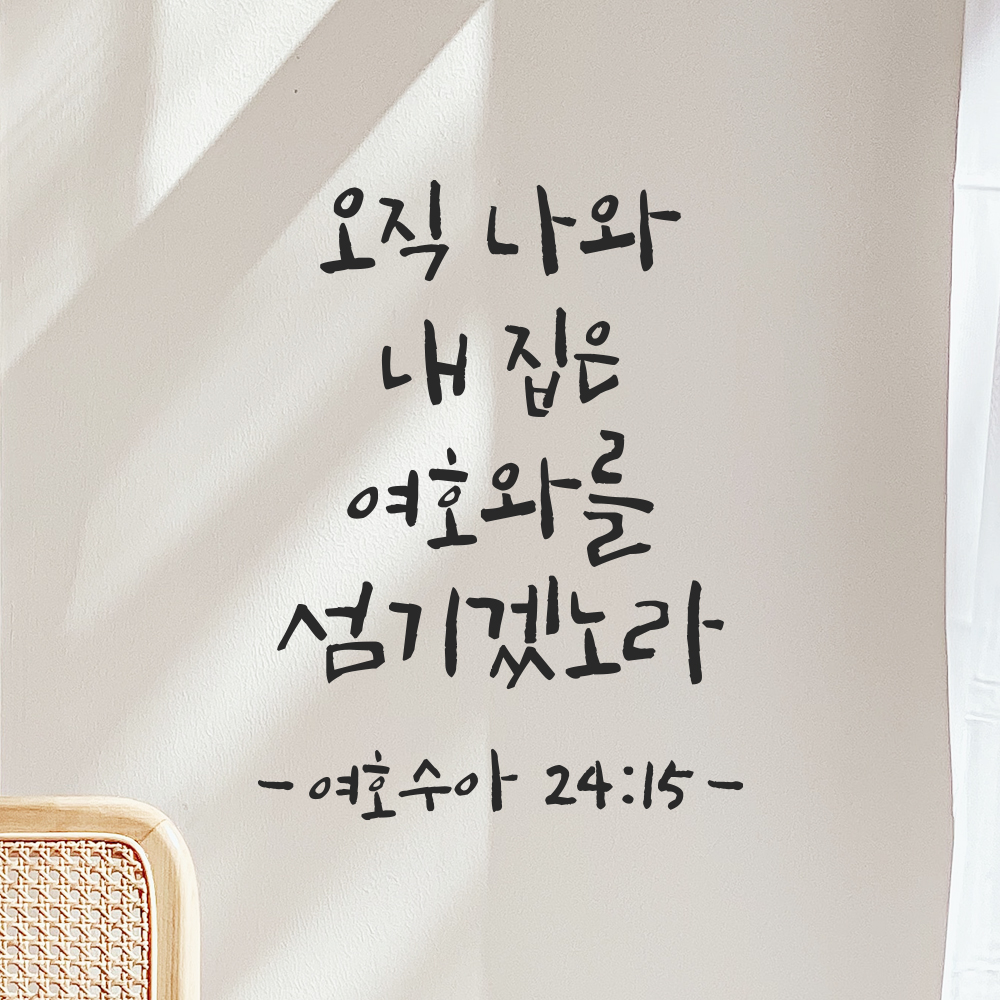 오직 나와
내 집은
여호와를
섬기겠노라
-여호수아 24:15-